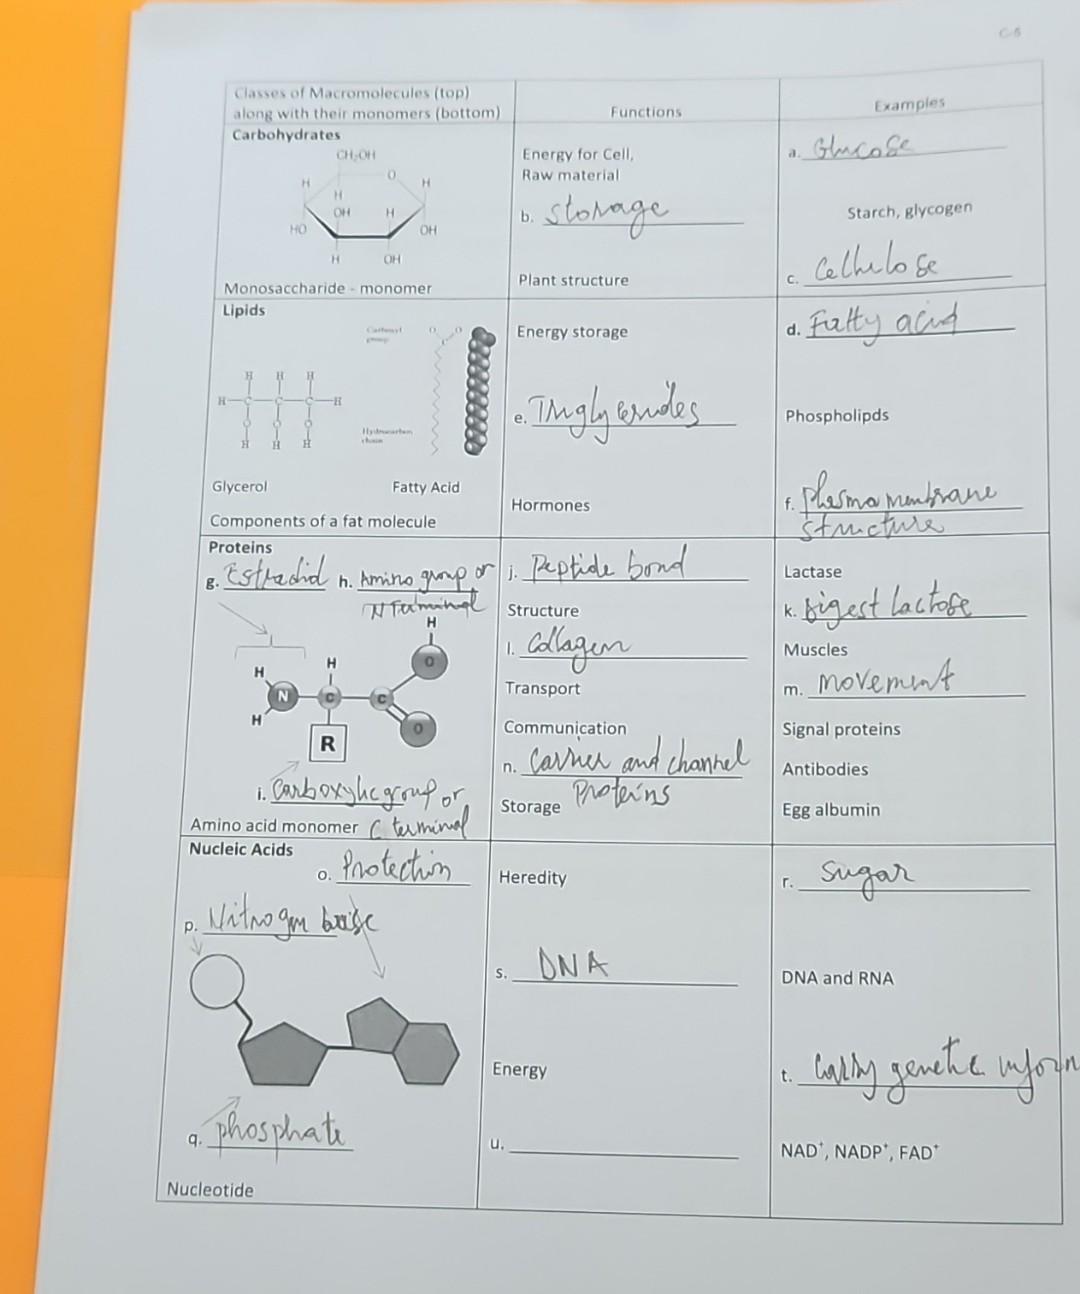 C-5
Classes of Macromolecules (top)
along with their monomers (bottom)
Functions
Examples
Carbohydrates
CH₂OH
O
H
H
H
OH
H
HO
OH
H
OH
Monosaccharide - monomer
Energy for Cell,
Raw material
b. storage
Plant structure
a. Glucose
Starch, glycogen
c. Cellulose
Lipids
Carboxyl
group
O
O
H H H
H C C C H
O O O
H H H
Hydrocarbon
chain
Glycerol
Fatty Acid
Components of a fat molecule
Energy storage
e. Triglycerides
Hormones
d. Fatty acid
Phospholipds
f. plasma membrane
structure
Proteins
g. Estradiol h. Amino group or
N Terminal
H
H
H
O
N
C
C
H
O
R
i. Carboxylic group or
Amino acid monomer C terminal
j. Peptide bond
Structure
l. Collagen
Transport
Communication
n. Carrier and channel
Proteins
Storage
Lactase
k. Digest lactose
Muscles
m. Movement
Signal proteins
Antibodies
Egg albumin
Nucleic Acids
o. Protection
p. Nitrogen base
q. phosphate
Nucleotide
Heredity
s. DNA
Energy
u.
r. Sugar
DNA and RNA
t. Carry genetic inform
NAD⁺, NADP⁺, FAD⁺